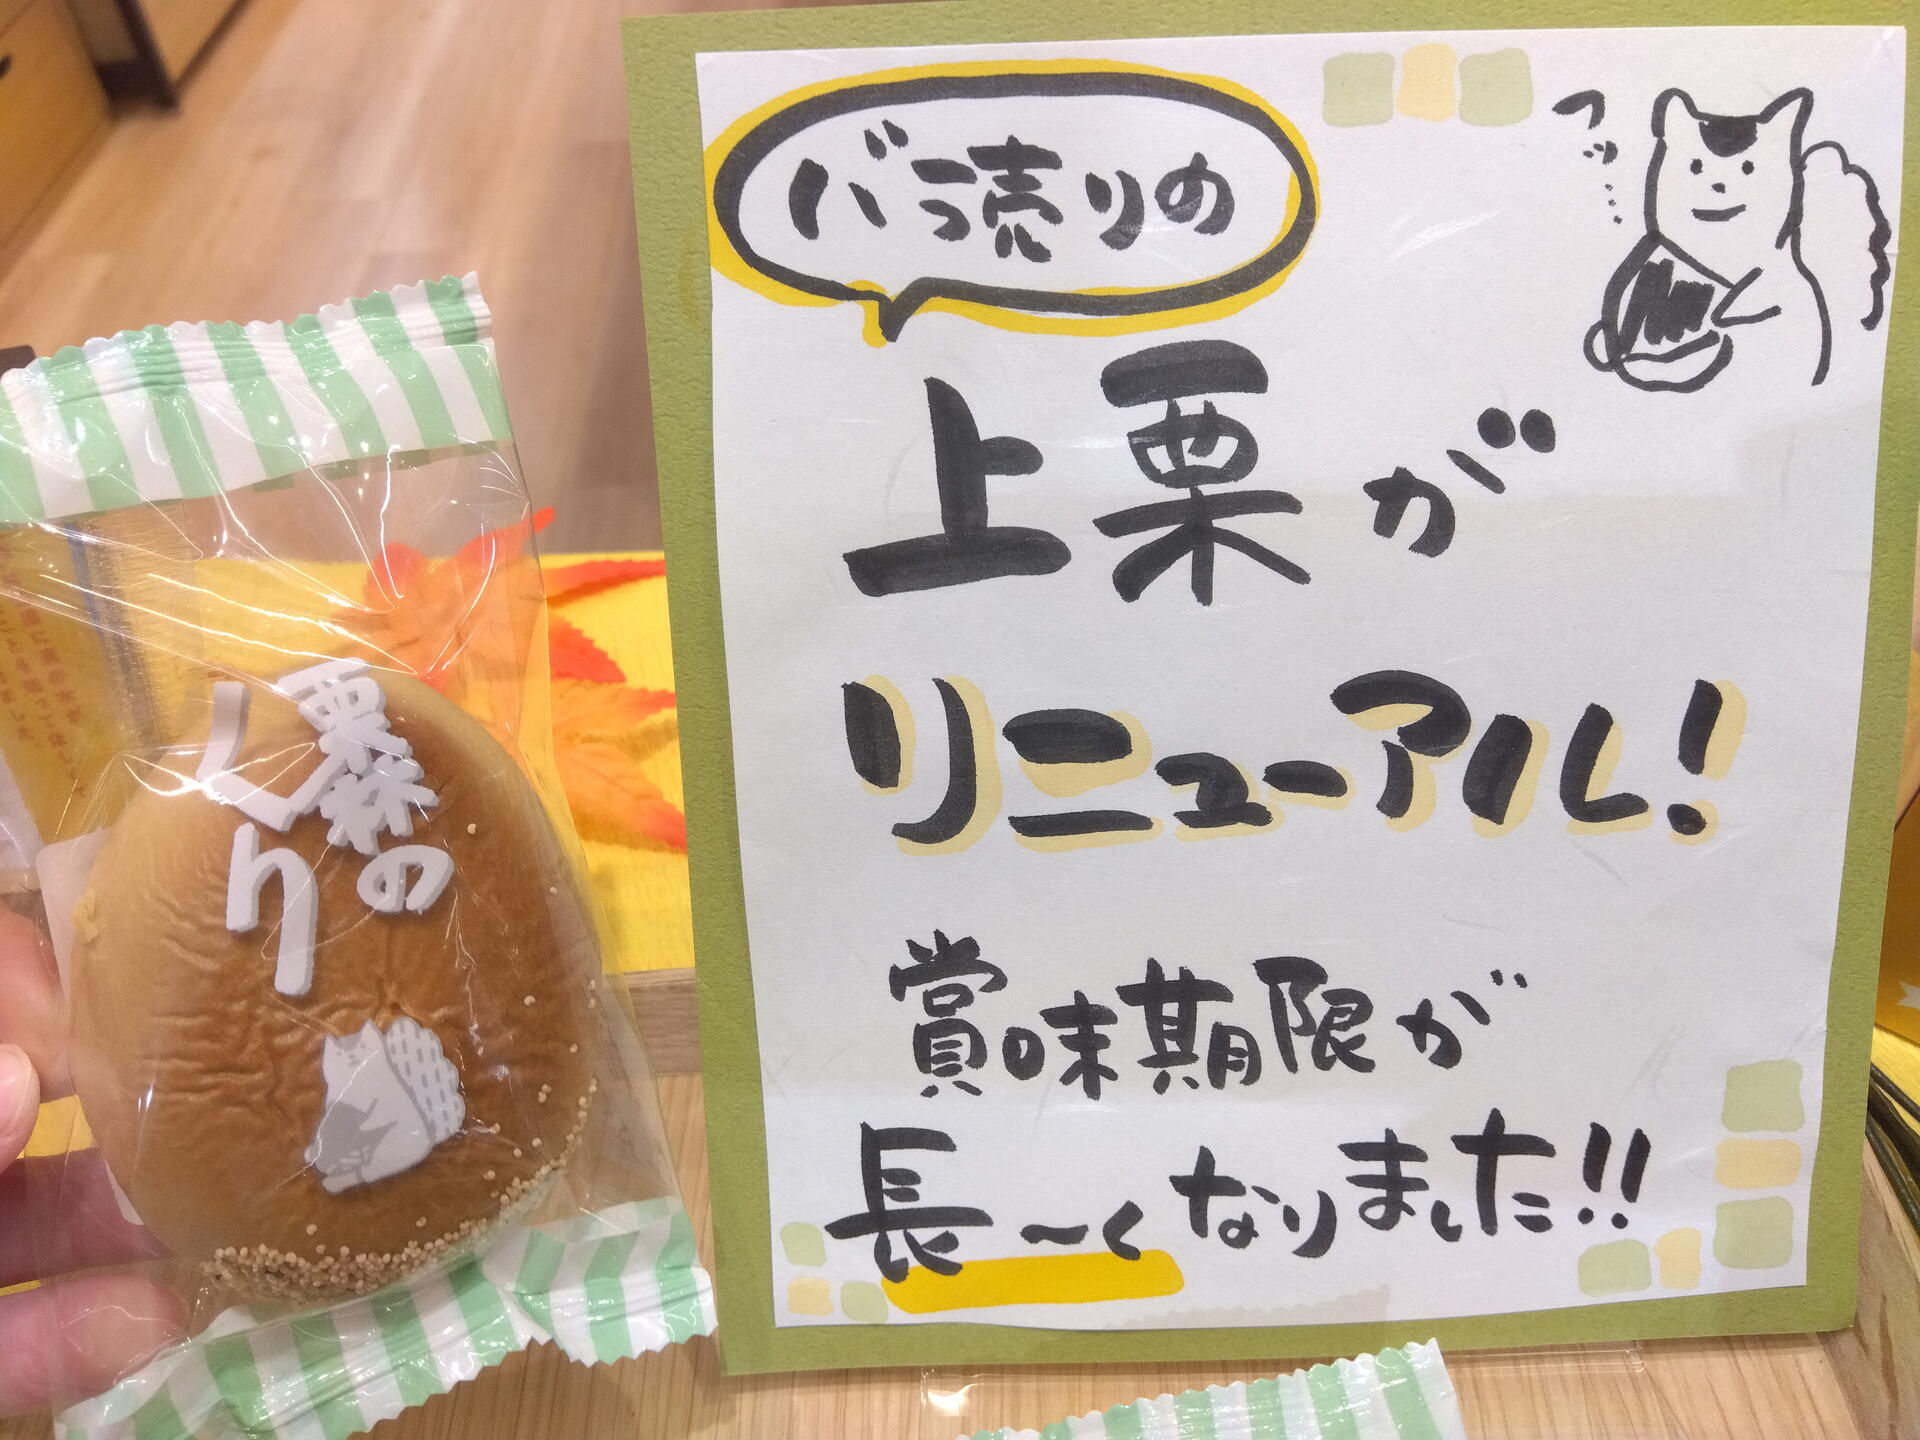 バラ売りの
フッ…
上栗が
リニューアル!
賞味期限が
長〜くなりました!!
栗林の
くり